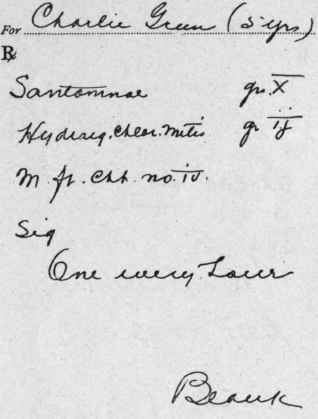 For Charlie Green (5 yrs)
℞
Santoninae grs. X
Hydrarg. Chlor. Mitis gr ij
M ft. Cht. no. iv.
Sig
One every hour
Blank